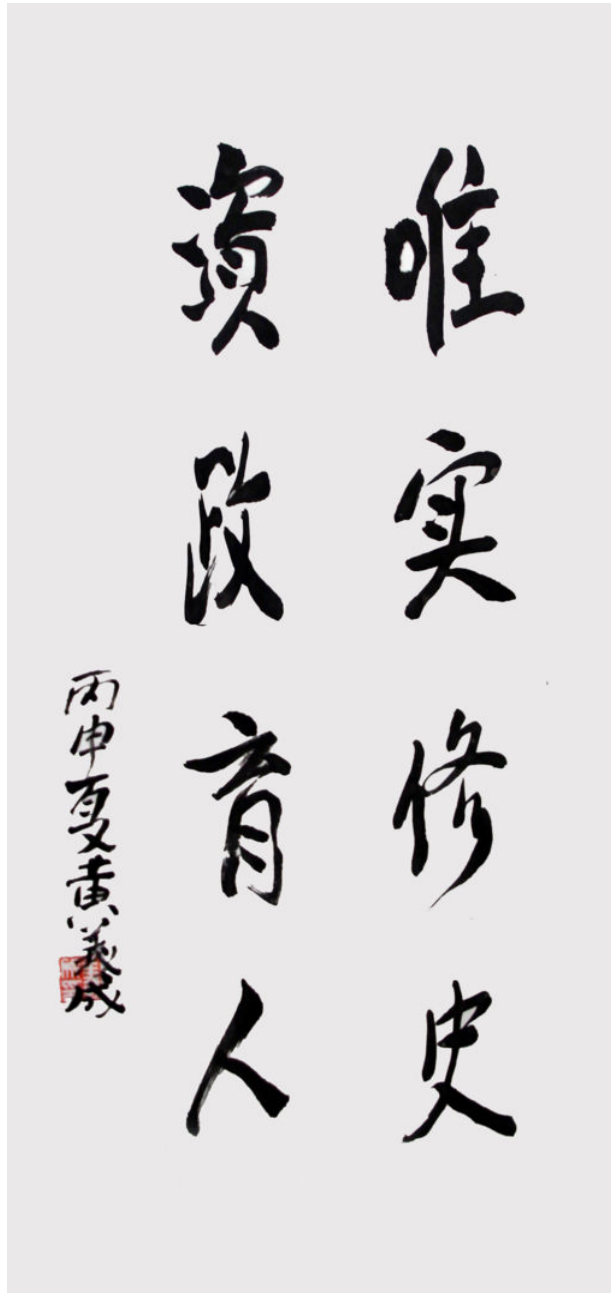 唯实修史
资政育人
丙申夏黄義成